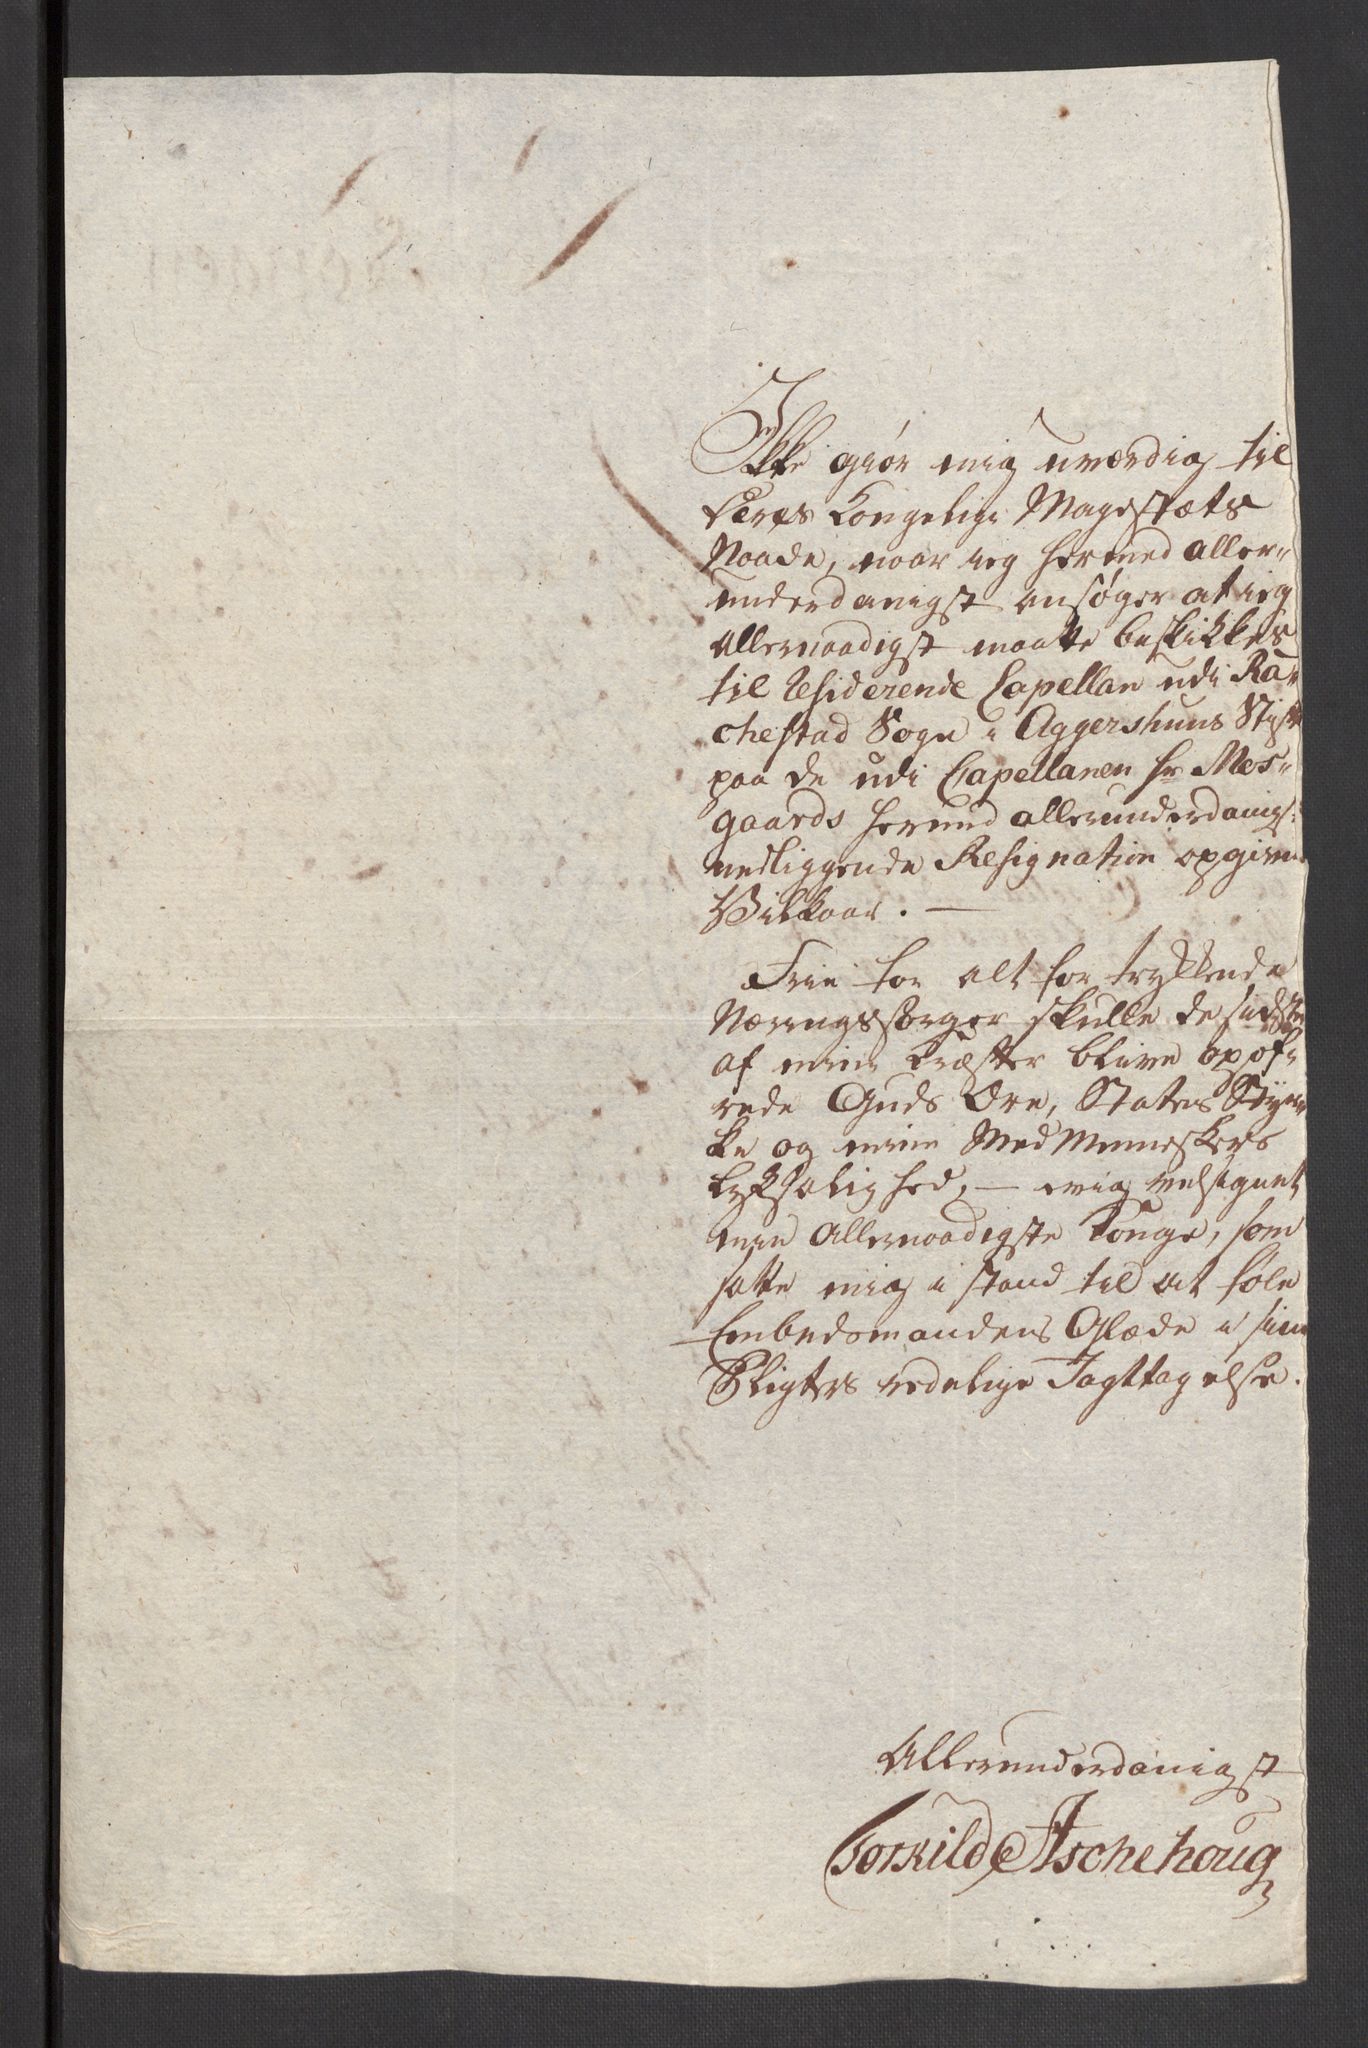 Ikke giør mig uværdig til
Deres Kongelige Magestæts
Naade, naar ieg hermed aller-
underdanigst ansøger at ieg
allernaadigst maatte beskikkes
til Residerende Capellan udi Ra-
chestad Sogn i Aggershuus Stift
paa de udi Capellanen Hr Mes-
gaards herved allerunderdanigst
vedliggende Resignation opgivne
Vilkaar. —
Frie for alt for trykkende
Næringssorger skulle de sidste
af mine Kræfter blive opof-
rede Guds Ære, Statens Styr-
ke og mine Med Menneskers
Lyksalighed, — evig velsignet
min Allernaadigste Konge, som
satte mig i stand til at føle
Embedsmandens Glæde i sine
Pligters redelige Iagttagelse.
Allerunderdanigst
Torkild Aschehoug